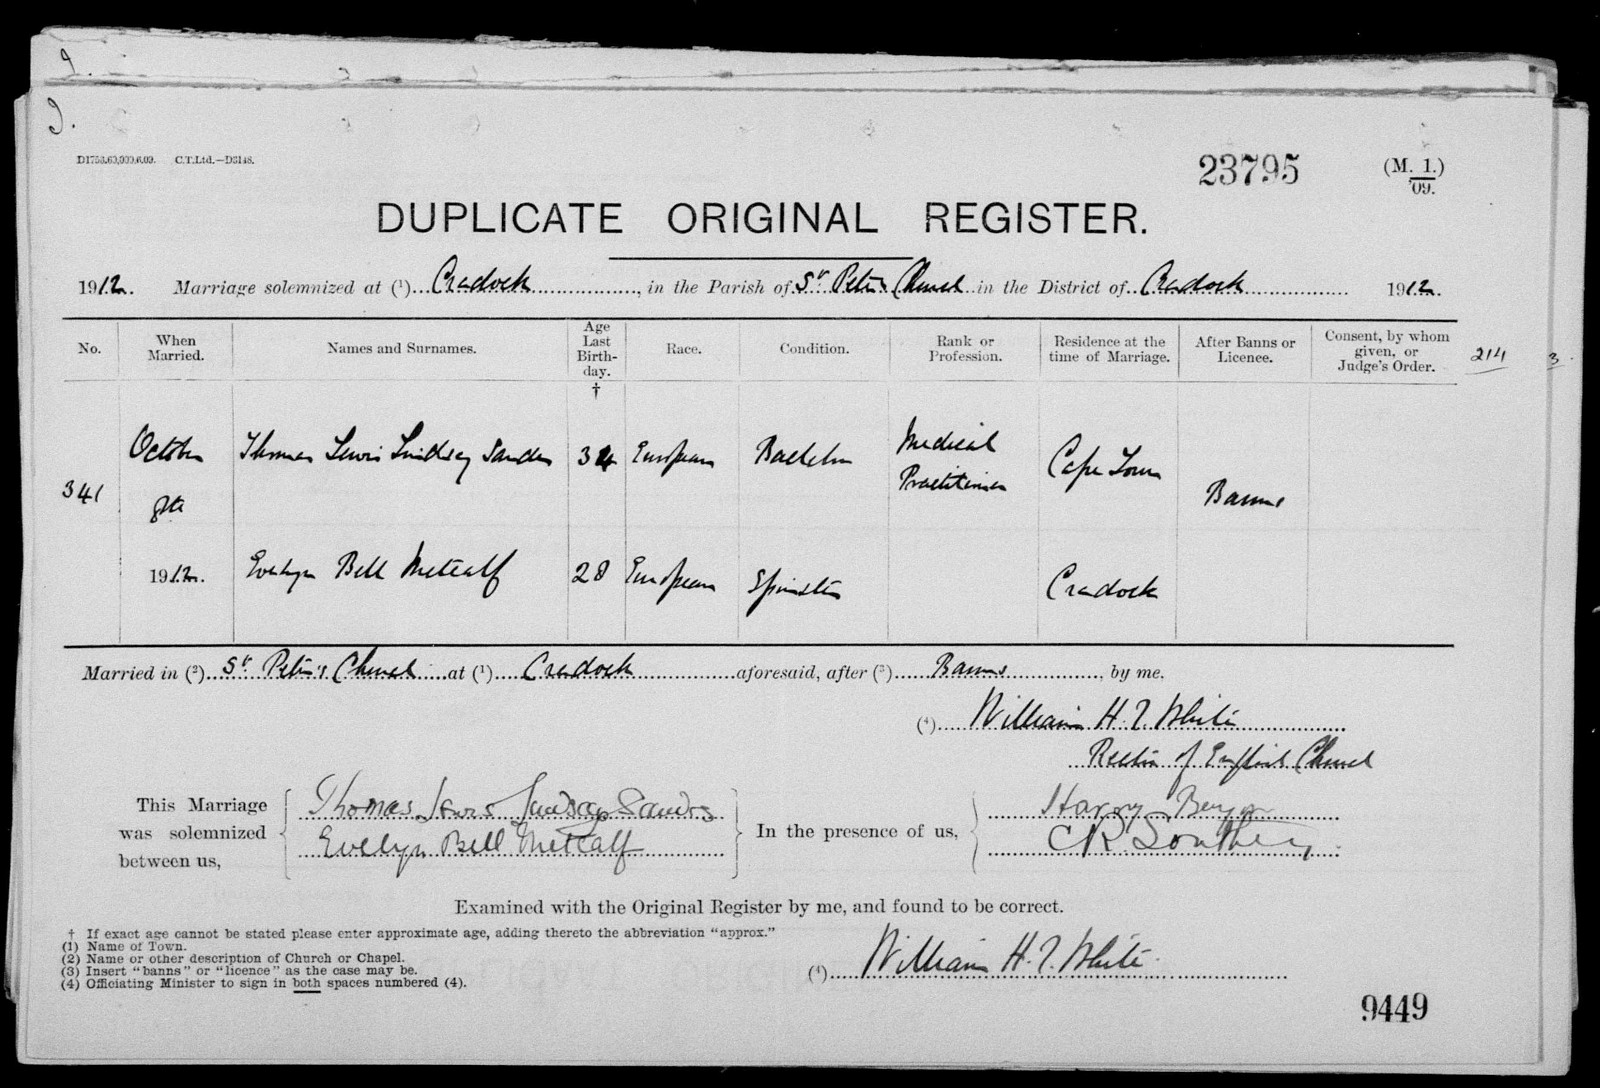 9.
9.
D1753.60,000,6.09. C.T.Ltd.—D3148.
23795
(M. 1.)
'09.
DUPLICATE ORIGINAL REGISTER.
1912. Marriage solemnized at (1) Cradock, in the Parish of St Peter's Church in the District of Cradock 1912.
No.
When Married.
Names and Surnames.
Age Last Birth-day. †
Race.
Condition.
Rank or Profession.
Residence at the time of Marriage.
After Banns or Licence.
Consent, by whom given, or Judge's Order.
214
3
341
October 8th 1912.
Thomas Lewis Lindsay Sandes 34 European Bachelor Medical Practitioner Cape Town
Banns
Evelyn Bell Metcalf 28 European Spinster Cradock
Married in (2) St. Peter's Church at (1) Cradock aforesaid, after (3) Banns, by me.
(4) William H. T. White
Rector of English Church
This Marriage was solemnized between us,
Thomas Lewis Lindsay Sandes
Evelyn Bell Metcalf
In the presence of us,
Harry
CR Southey
Examined with the Original Register by me, and found to be correct.
† If exact age cannot be stated please enter approximate age, adding thereto the abbreviation "approx."
(1) Name of Town.
(2) Name or other description of Church or Chapel.
(3) Insert "banns" or "licence" as the case may be.
(4) Officiating Minister to sign in both spaces numbered (4).
(4) William H. T. White
9449